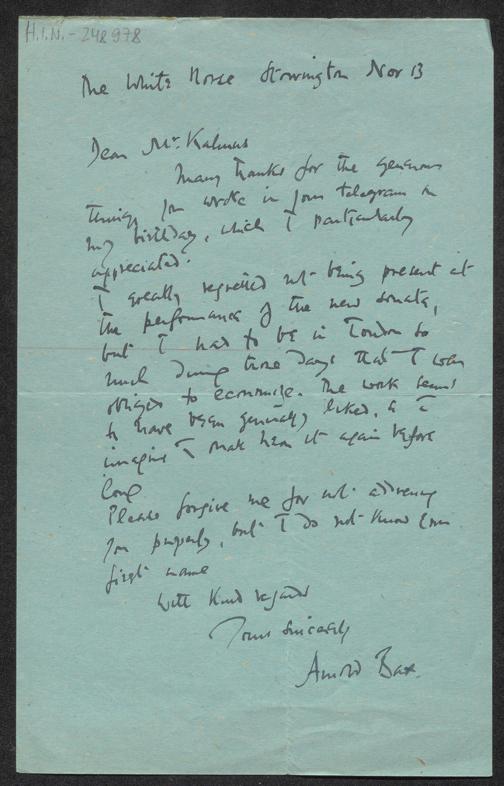 H.I.N. - 248978
The White Horse Storrington Nov 13
Dear Mr. Kalmus
Many thanks for the generous
things you wrote in your telegram on
my birthday, which I particularly
appreciated.
I greatly regretted not being present at
the performance of the new sonata,
but I had to be in London so
much during those days that I was
obliged to economize. The work seems
to have been generally liked, & I
imagine I shall hear it again before
long
Please forgive me for not addressing
you properly, but I do not know your
first name
With kind regards
Yours sincerely
Arnold Bax.